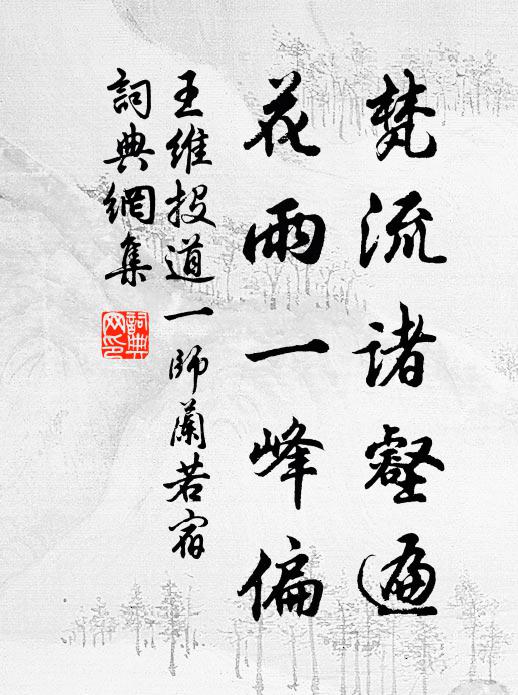 梵流諸壑遍
花雨一峰偏
王維投道一師蘭若宿
詞典網集
詞典网印